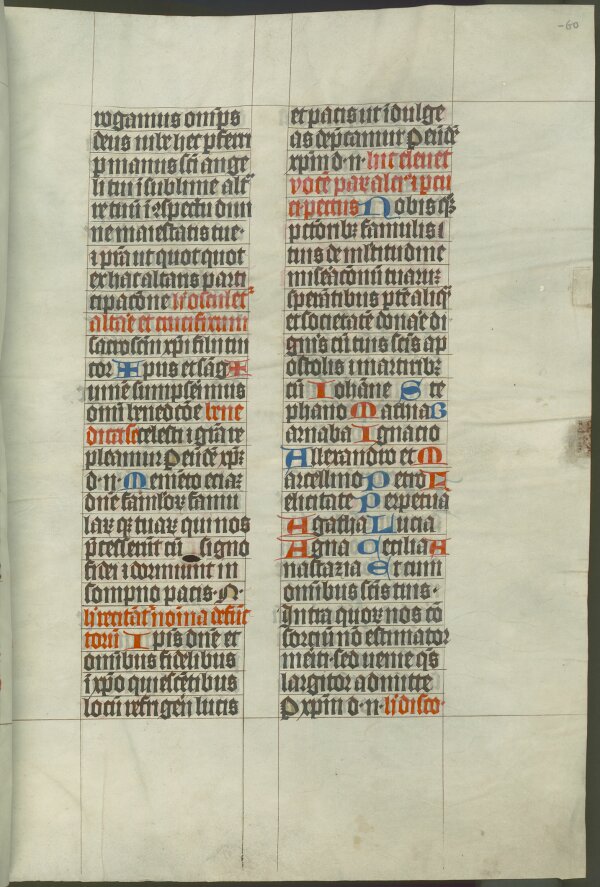 -60
rogamus omps
deus iube hec pferri
p manus sci ange
li tui i sublime alt
re tuu i ɔspectu diui
ne maiestatis tue·
i pra ut quot quot
ex hac altaris parti
cipacone
altare et crucifixum
sacroscm xpi filii tui
cor ✠ pus et sang ✠
uine sumpserimus
omi benedcoe bene
celesti i gra re
pleamur P eude xpm
d·n· M emeto eciaz
dne famlor famu
lar qz tuar qui nos
pcesserut cu signo
fidei i dormiunt in
sompno pacis· N·
recitat noina defuc
toru I psis dne et
omibus fidelibus
i xpo quiescetibus
locu refrigerii lucis
et pacis ut idulge
as depcamur P eude
xpm d·n·
voce
pectus N obis qz
pctorib famulis
tuis de multitudine
miseaconu tuaruz
speratibus pte aliq
et societate donare di
gneris cu tuis scis ap
ostolis i martirib
cu I ohane S te
phano M athia B
arnaba I gnacio
A llexandro et M
arcellino P etro F
elicitate P erpetua
A gatha L ucia
A gna C ecilia A
nastazia E t cum
omibus scis tuis·
Intra quor nos co
sorciu no estimator
meiti· sed uenie qs
largitor admitte
P xpm d·n·